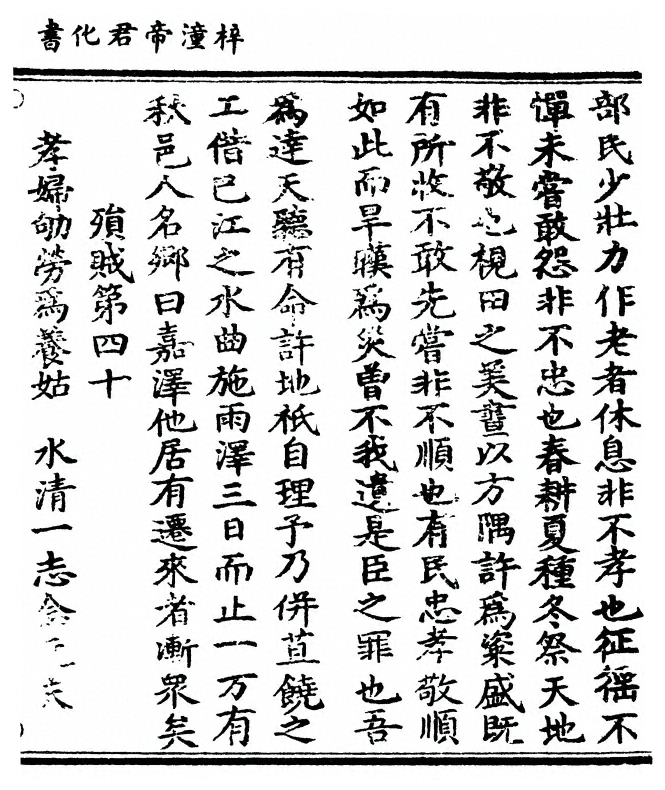 梓潼帝君化書
部民少壯力作老者休息非不孝也征徭不
憚未嘗敢怨非不忠也春耕夏種冬祭天地
非不敬也視田之美以方隅許爲粢盛既
有所收不敢先嘗非不順也有民忠孝敬順
如此而旱暵爲災曾不我遺是臣之罪也吾
爲達天聽有命許地祇自理予乃併苴饒之
工借已江之水曲施雨澤三日而止一万有
秋邑人名鄉曰嘉澤他居有遷來者漸眾矣
殞賊第四十
孝婦劬勞爲養姑 水清一志念夫